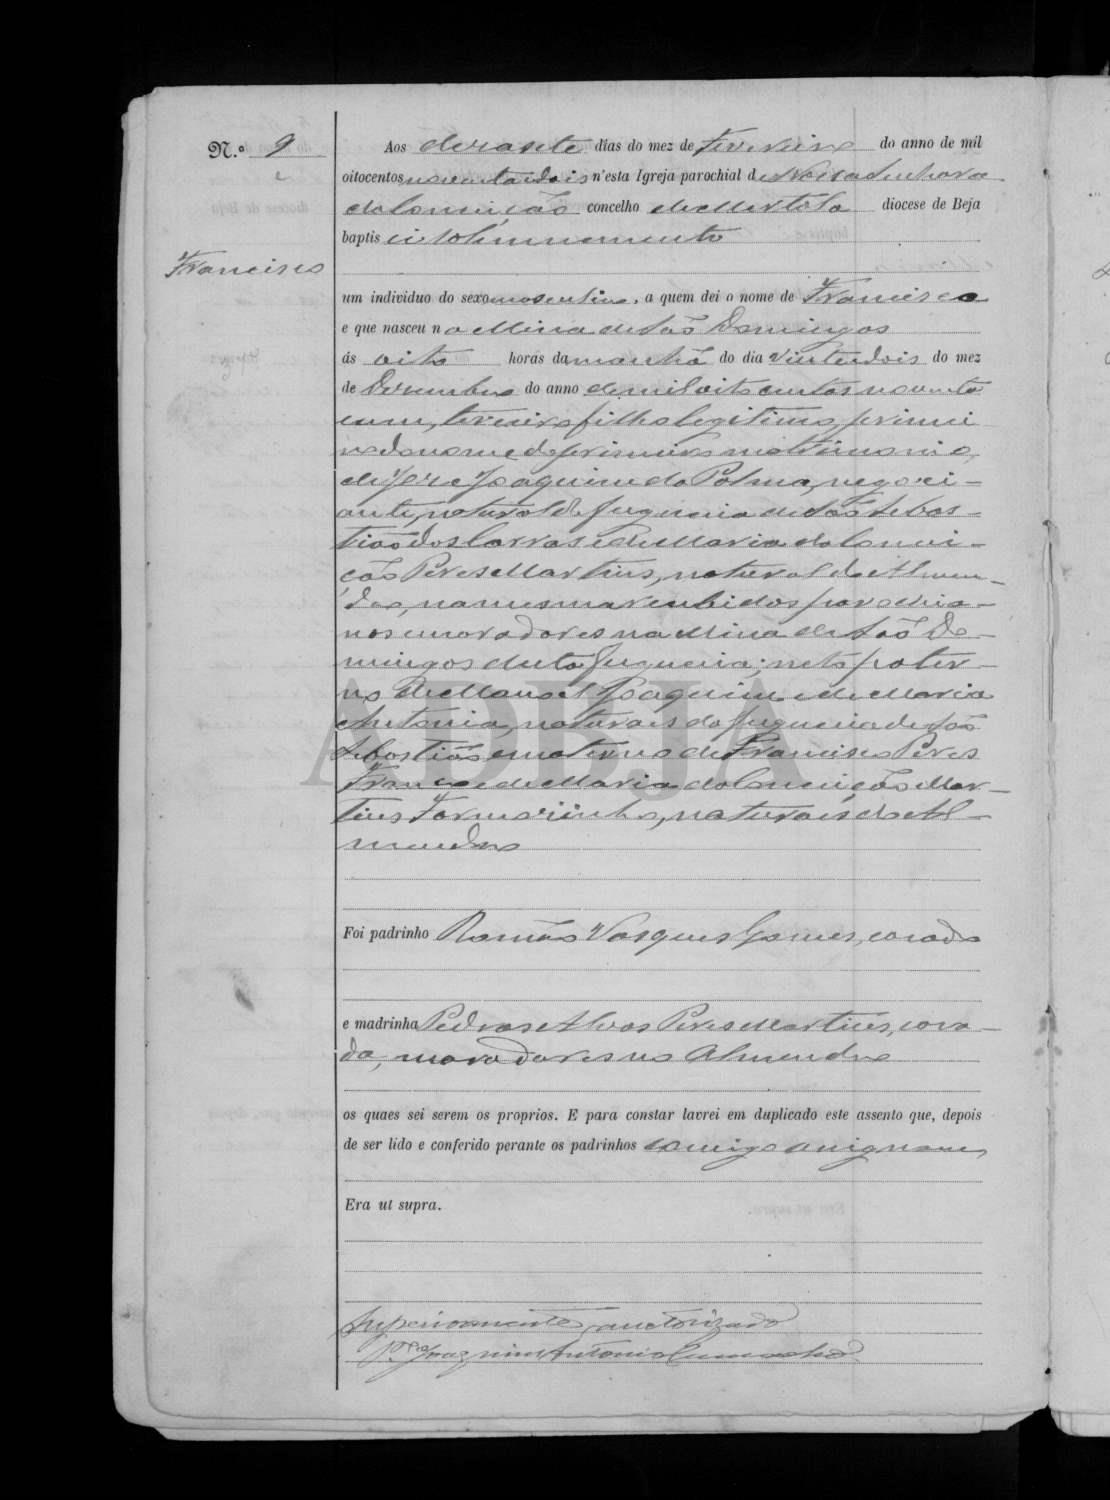 N.º 9
Francisco
Aos dezasete dias do mez de Fevereiro do anno de mil
oitocentos noventa e dois n'esta Igreja parochial de Nossa Senhora
da Conceição concelho de Mertola diocese de Beja
baptisei solemnemente
um individuo do sexo masculino, a quem dei o nome de Francisco
e que nasceu na Mina de São Domingos
ás oito horas da manhã do dia vinte e dois do mez
de Dezembro do anno de mil oito centos noventa
e um, terceiro filho legitimo, primei
ro do nome e do primeiro matrimonio,
de José Joaquim da Palma, negoci-
ante, natural da freguezia de São Sebas-
tião dos Carros e de Maria da Concei-
ção Peres Martins, natural de Almen-
dro, na mesma recebidos parochia-
nos e moradores na Mina de São Do-
mingos desta freguezia; neto pater-
no de Manoel Joaquim e de Maria
Antonia, naturaes da freguezia de São
Sebastião e materno de Francisco Peres
Franco e de Maria da Conceição Mar-
tins naturaes do Al-
mendro
Foi padrinho Ramão Vasques Gomes, casado
e madrinha Peres Martins, casa-
da, moradores no Almendro
os quaes sei serem os proprios. E para constar lavrei em duplicado este assento que, depois
de ser lido e conferido perante os padrinhos comigo assignam
Era ut supra.
Superiormente auctorizado
P.e Joaquim Antonio
ADBJA